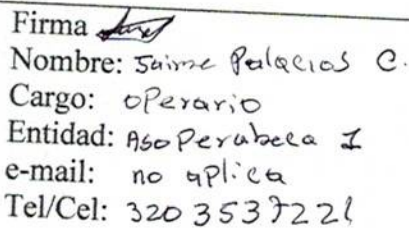 Firma
Nombre: Jaime Palacios C.
Cargo: operario
Entidad: Asoperabeca I
e-mail: no aplica
Tel/Cel: 320 3537221